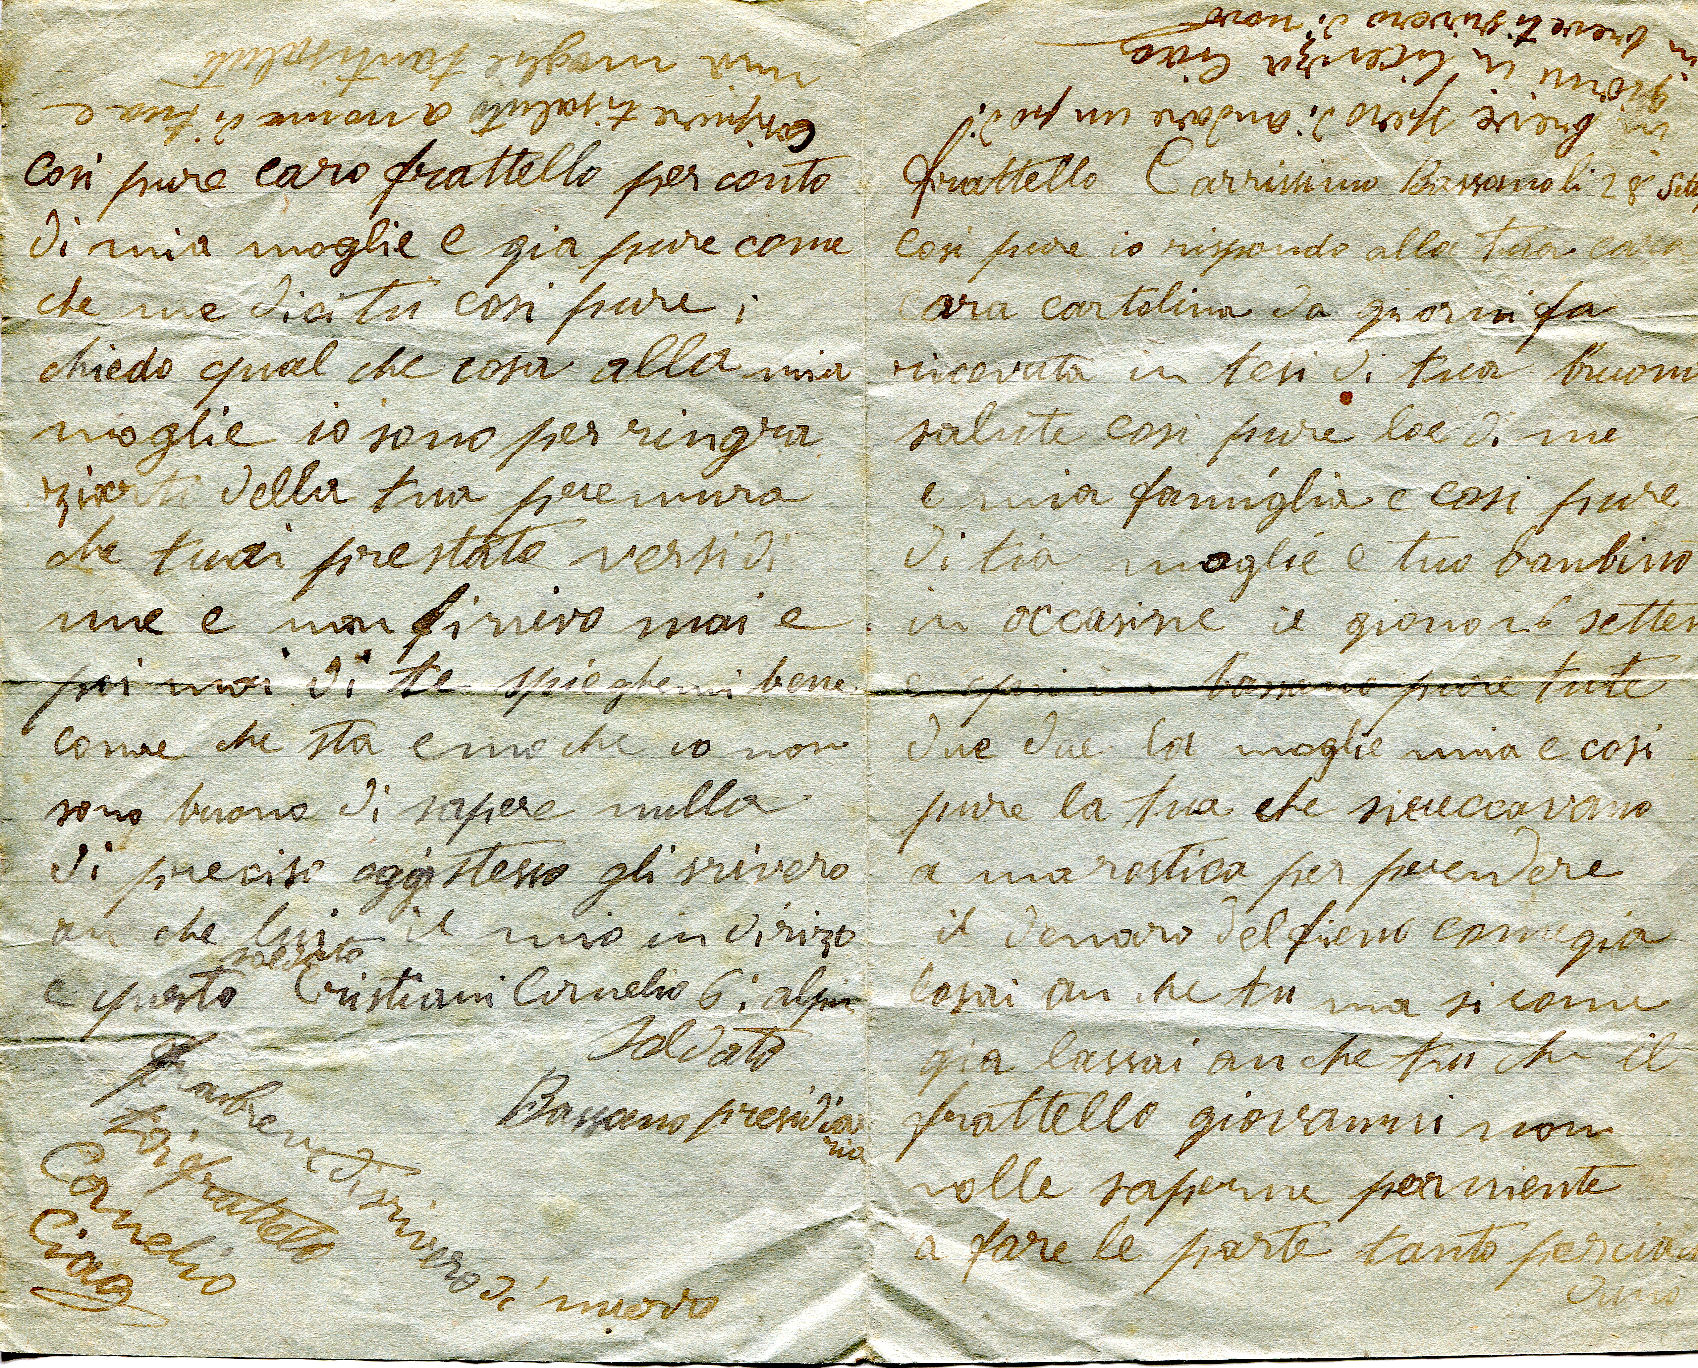 Frattello Carrissimo Bassano li 28 Sett
Cosi pure io rispondo alla tua cara
cara cartolina da giorni fa
ricevuta in tesi di tua buona
salute cosi pure loe di me
e mia famiglia e cosi pure
di tia moglie e tuo banbino
in occasine il giorno 26 setten
bassano pure tute
due dae la moglie mia e cosi
pure la tua che sireccavano
a marostica per prendere
il denaro del fieno come gia
losai an che tu ma si come
gia lassai an che tu che il
frattello giovanni non
volle saperne per niente
a fare le parte tanto per ciao
duno
Cosi pure caro frattello per conto
di mia moglie e gia pure come
che me dici tu cosi pure i
chiedo qual che cosa alla mia
moglie io sono per ringra
ziarti della tua premura
che tuai prestato versi di
me e non finivo mai e
poi mai di te spieghemi bene
come che sta emoche io non
sono buono di sapere nulla
di preciso oggi stesso gli srivero
an che lui il mio in dirizo
soldato
e questo Cristiani Cornelio 6: alpin
Soldato
Bassano presidia
ria
fra breve ti srivero di nuovo
tuo frattello
Cornelio
Ciao
Conpure ti saluto a nome di tua e
mia moglie tanti saluti
in breve spero di andare un po di
giorni in licenza Ciao
in breve ti srivero di novo